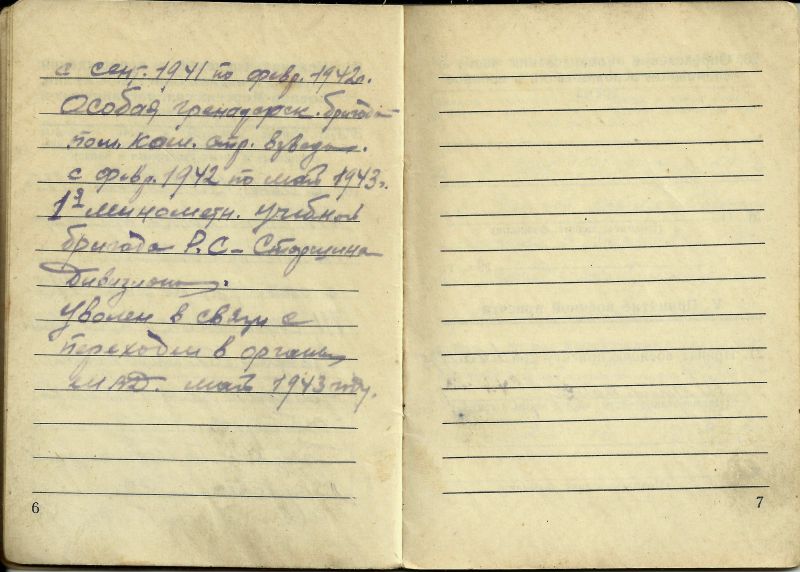 с сент. 1941 по февр. 1942г.
Особая гренадерск. бригада
пом. ком. стр. взвода.
с февр. 1942 по май 1943г.
1я минометн. учебная
бригада Р.С - Старшина
Дивизиона.
Уволен в связи с
переходом в органы
май 1943 году.
6
7